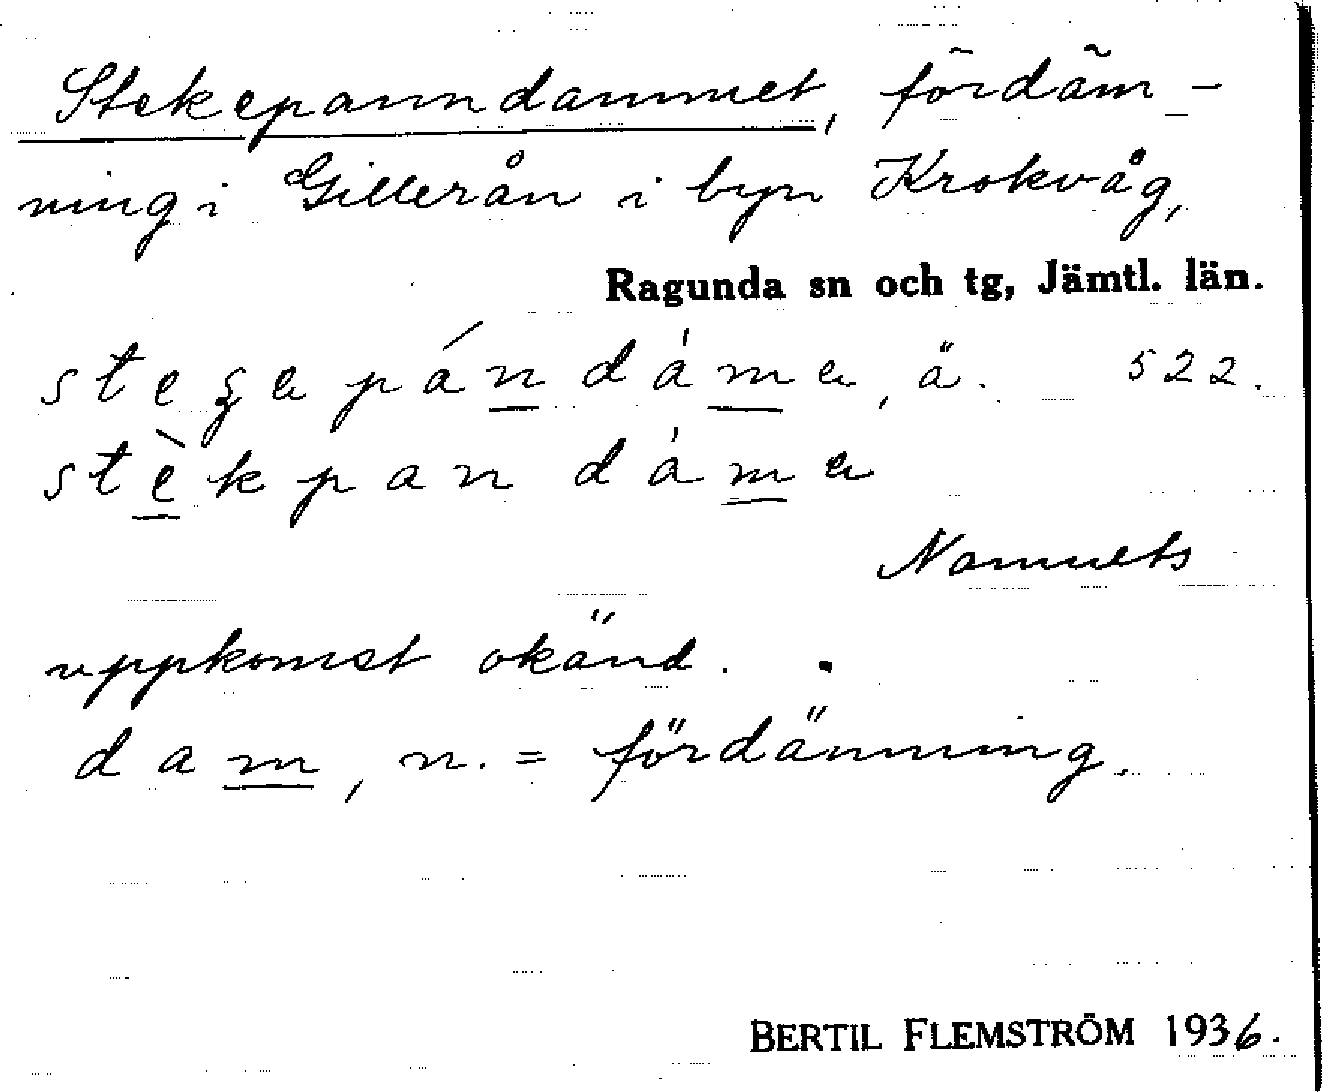 Stekepanndammet, fördäm-
ning i Gillerån i byn Krokvåg,
Ragunda sn och tg, Jämtl. län.
stegapándáma, ä. 522.
stèkpandáma
Namnets
uppkomst okänd.
dam, n. = fördämning.
BERTIL FLEMSTRÖM 1936.